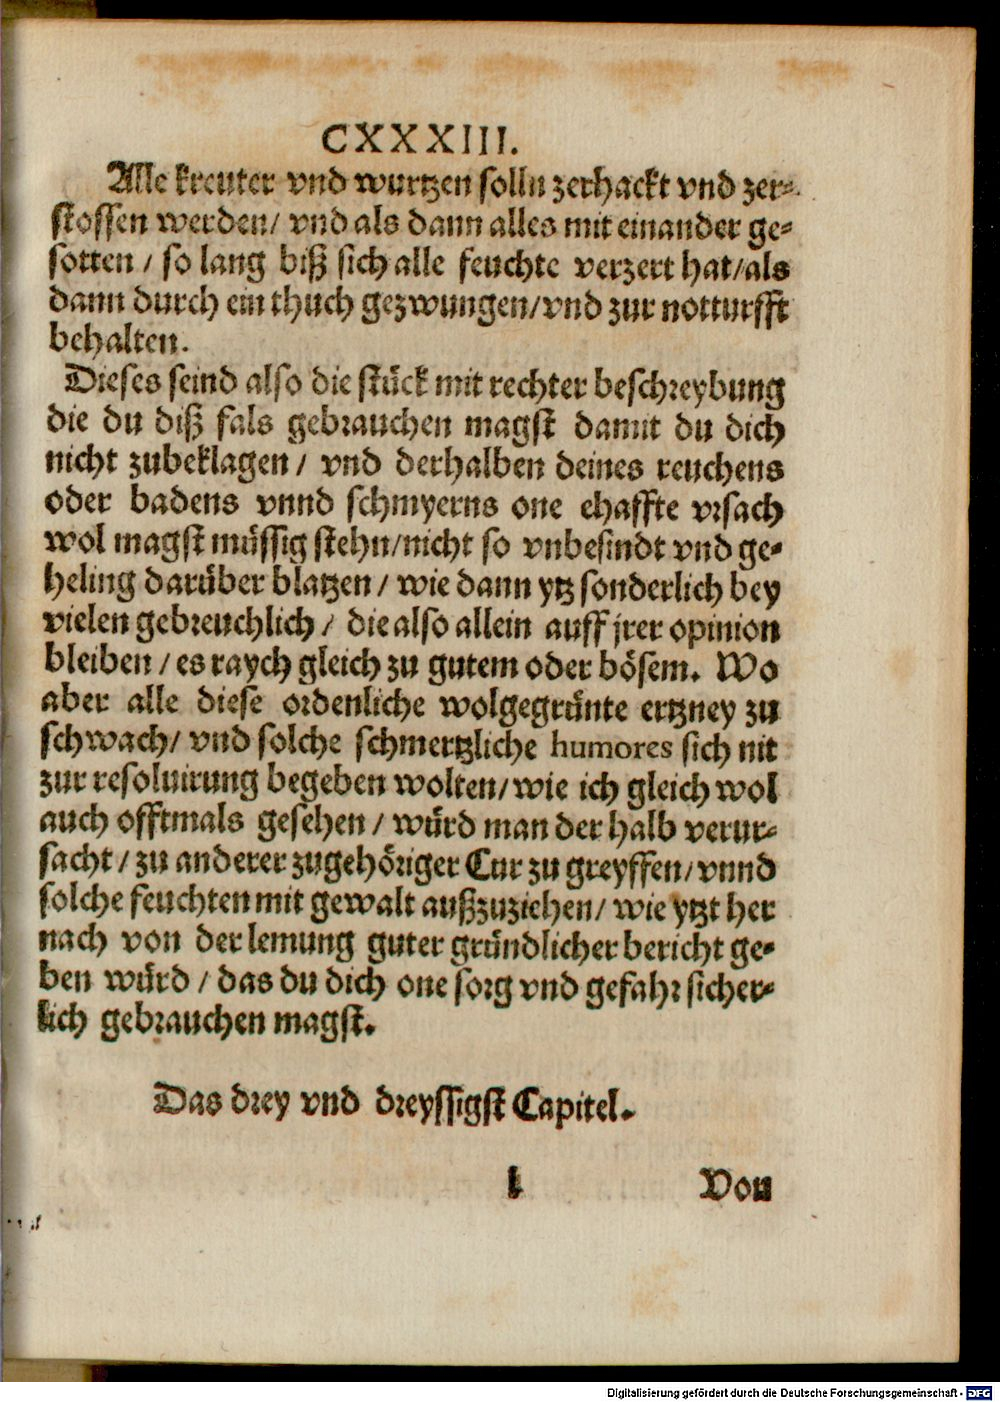 CXXXIII.
Alle kreuter vnd wurtzen solln zerhackt vnd zer-
stossen werden/ vnd als dann alles mit einander ge-
sotten / so lang biß sich alle feuchte verzert hat/als
dann durch ein thuch gezwungen/vnd zur notturfft
behalten.
Dieses seind also die stuͤck mit rechter beschreybung
die du diß fals gebrauchen magst damit du dich
nicht zubeklagen / vnd derhalben deines reuchens
oder badens vnnd schmyerns one ehaffte vrsach
wol magst muͤssig stehn/nicht so vnbesindt vnd ge-
heling daruͤber blatzen / wie dann ytz sonderlich bey
vielen gebreuchlich / die also allein auff jrer opinion
bleiben / es raych gleich zu gutem oder boͤsem. Wo
aber alle diese ordenliche wolgegruͤnte ertzney zu
schwach/ vnd solche schmertzliche humores sich nit
zur resoluirung begeben wolten/wie ich gleich wol
auch offtmals gesehen / wuͤrd man der halb verur-
sacht / zu anderer zugehoͤriger Cur zu greyffen/vnnd
solche feuchten mit gewalt außzuziehen/ wie ytzt her
nach von der lemung guter gruͤndlicher bericht ge-
ben wuͤrd / das du dich one sorg vnd gefahr sicher-
lich gebrauchen magst.
Das drey vnd dreyssigst Capitel.
l Von
Digitalisierung gefördert durch die Deutsche Forschungsgemeinschaft - DFG